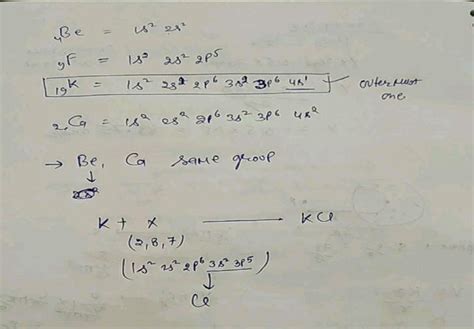 ₄Be = 1s² 2s²
₉F = 1s² 2s² 2p⁵
₁₉K = 1s² 2s² 2p⁶ 3s² 3p⁶ 4s¹
outermost one
₂Ca = 1s² 2s² 2p⁶ 3s² 3p⁶ 4s²
→ Be, Ca same group
↓
K + X ⟶ KCl
(2,8,7)
(1s² 2s² 2p⁶ 3s² 3p⁵)
↓
Cl